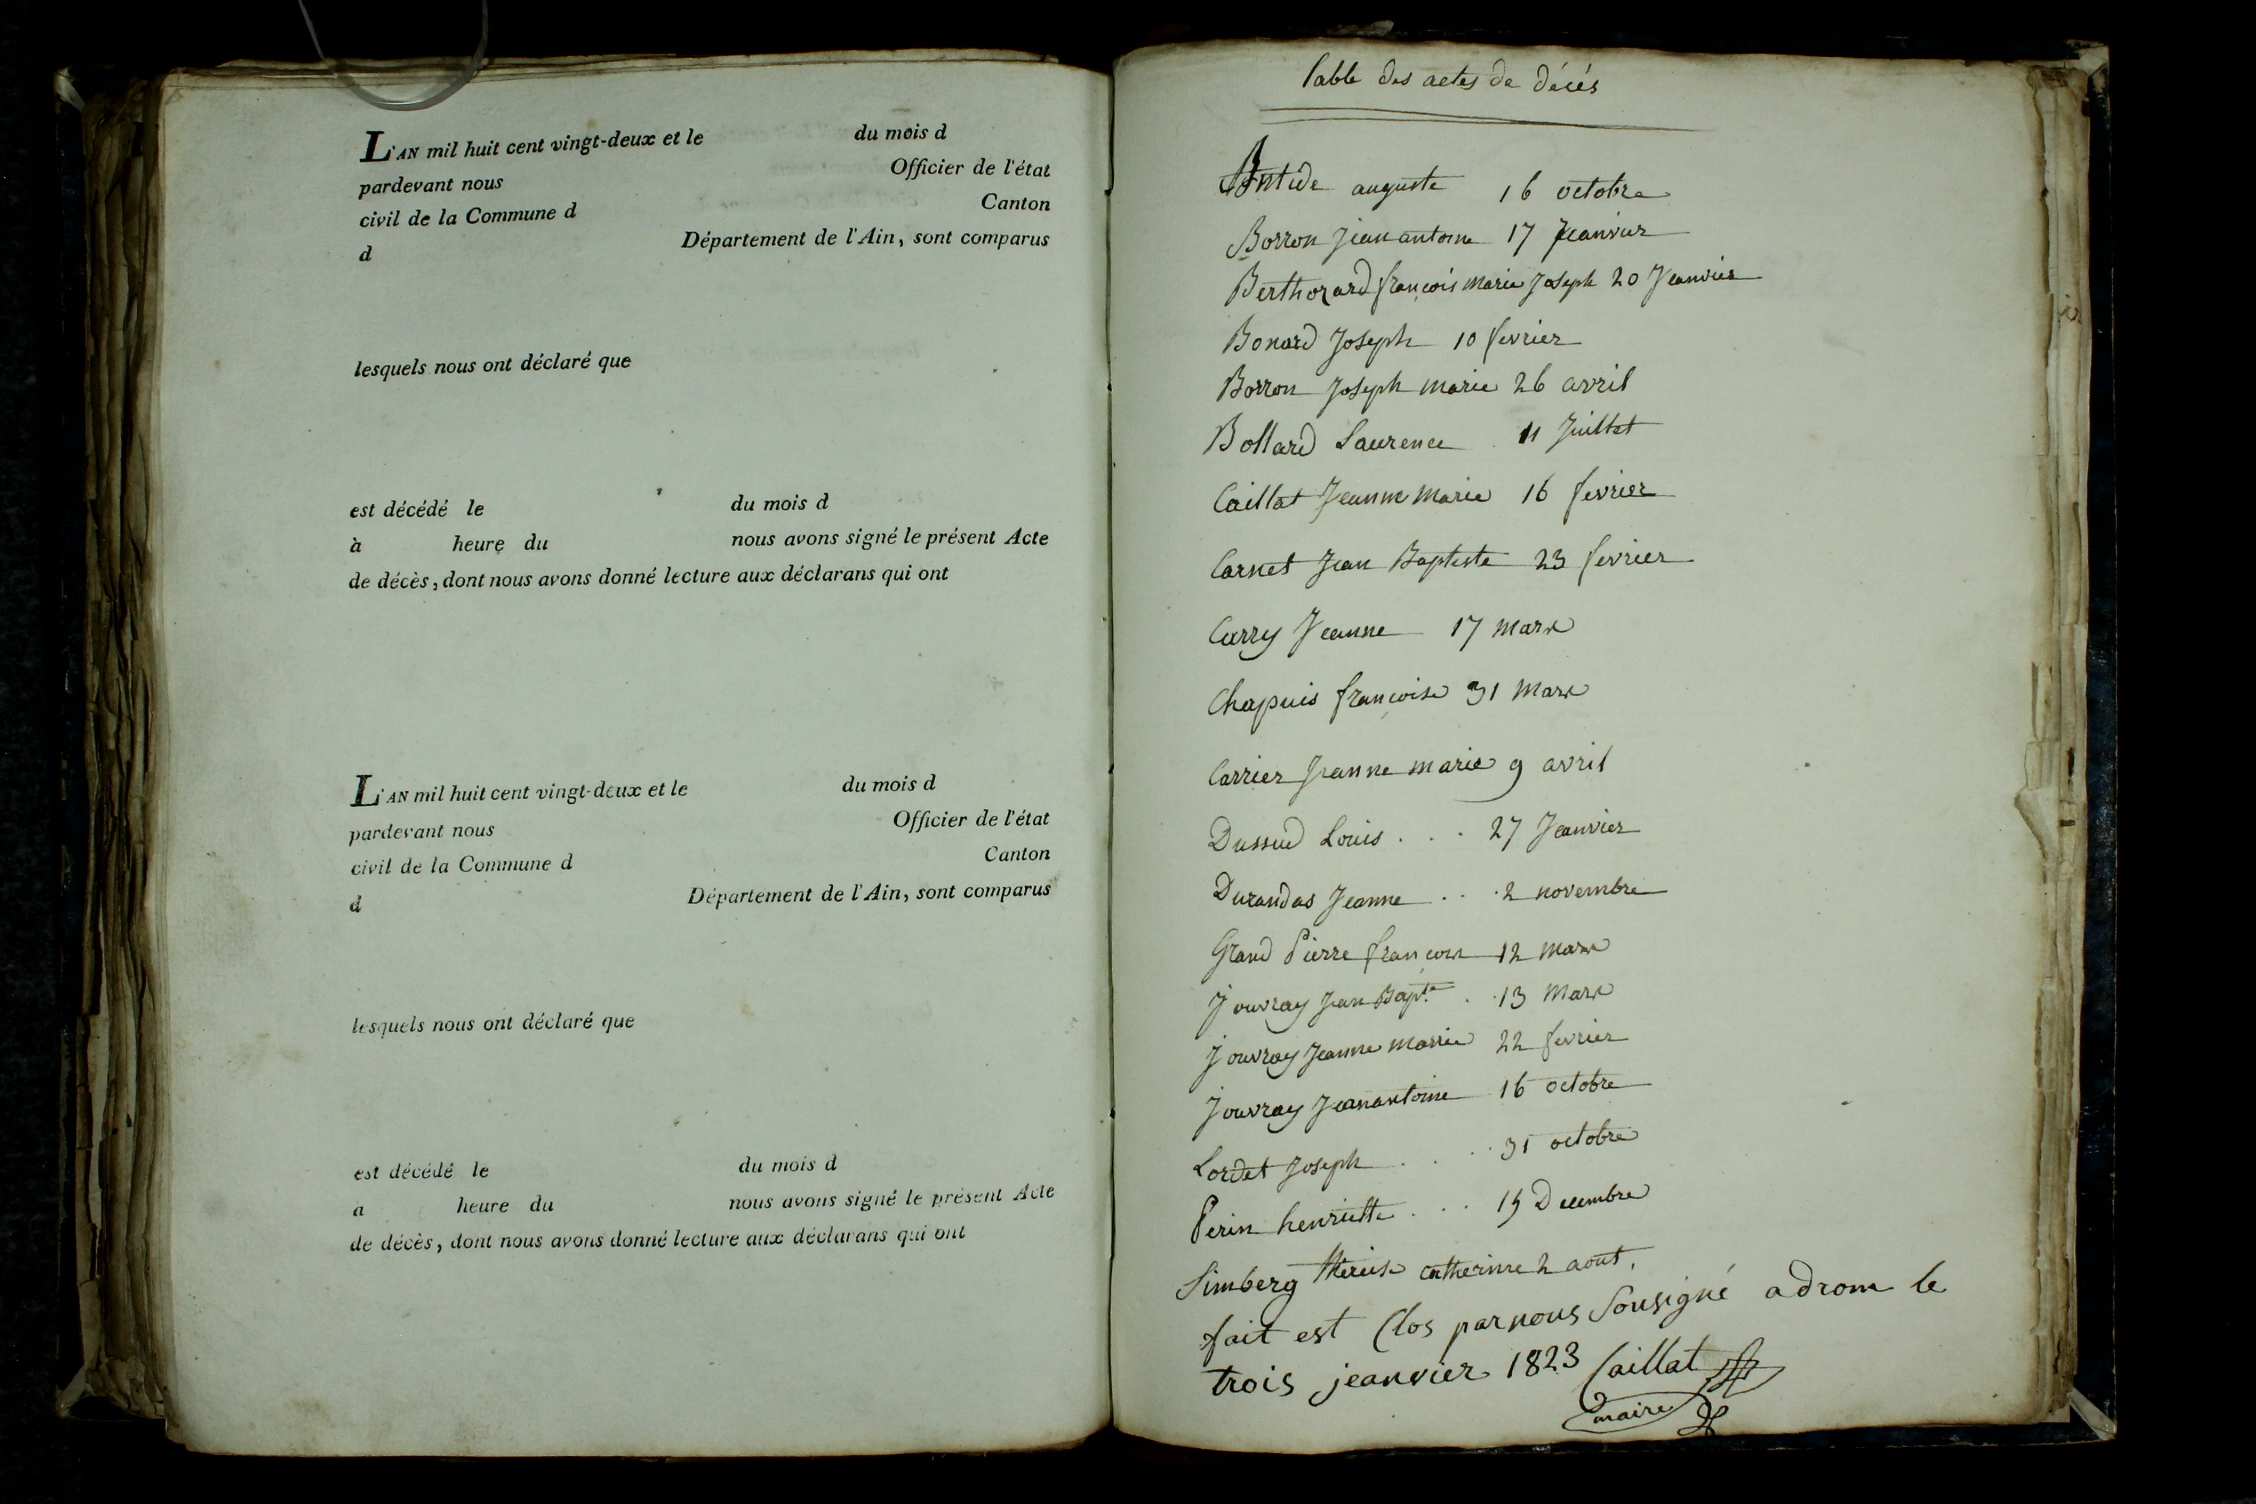 L'AN mil huit cent vingt-deux et le du mois d
pardevant nous Officier de l'état
civil de la Commune d Canton
d Département de l'Ain, sont comparus
lesquels nous ont déclaré que
est décédé le du mois d
à heure du nous avons signé le présent Acte
de décès, dont nous avons donné lecture aux déclarans qui ont
L'AN mil huit cent vingt-deux et le du mois d
pardevant nous Officier de l'état
civil de la Commune d Canton
d Département de l'Ain, sont comparus
lesquels nous ont déclaré que
est décédé le du mois d
a heure du nous avons signé le présent Acte
de décès, dont nous avons donné lecture aux déclarans qui ont
Table des actes de décés
auguste 16 octobre
Borron Jean antoine 17 Jeanvier
Berthozard françois Marie Joseph 20 Jeanvier
Bonard Joseph 10 fevrier
Borron Joseph marie 26 avril
Bollard Laurence 11 Juillet
Caillat Jeanne Marie 16 fevrier
Carnet Jean Baptiste 23 fevrier
Carry Jeanne 17 mars
Chapuis françoise 31 Mars
Carrier Jeanne marie 9 avril
Dussud Louis . . . 27 Jeanvier
Durandas Jeanne . . . 2 novembre
Grand Pierre françois 12 mars
Jouvray Jean Bapte. . . 13 Mars
Jouvray Jeanne Marrie 22 fevrier
Jouvray Jeanantoine 16 octobre
Lordet Joseph . . . . 31 octobre
Perin henriette . . . 15 Decembre
Simberg therese catherine 2 aout.
fait est Clos par nous Sousigné a drom le
trois jeanvier 1823 Caillat
maire